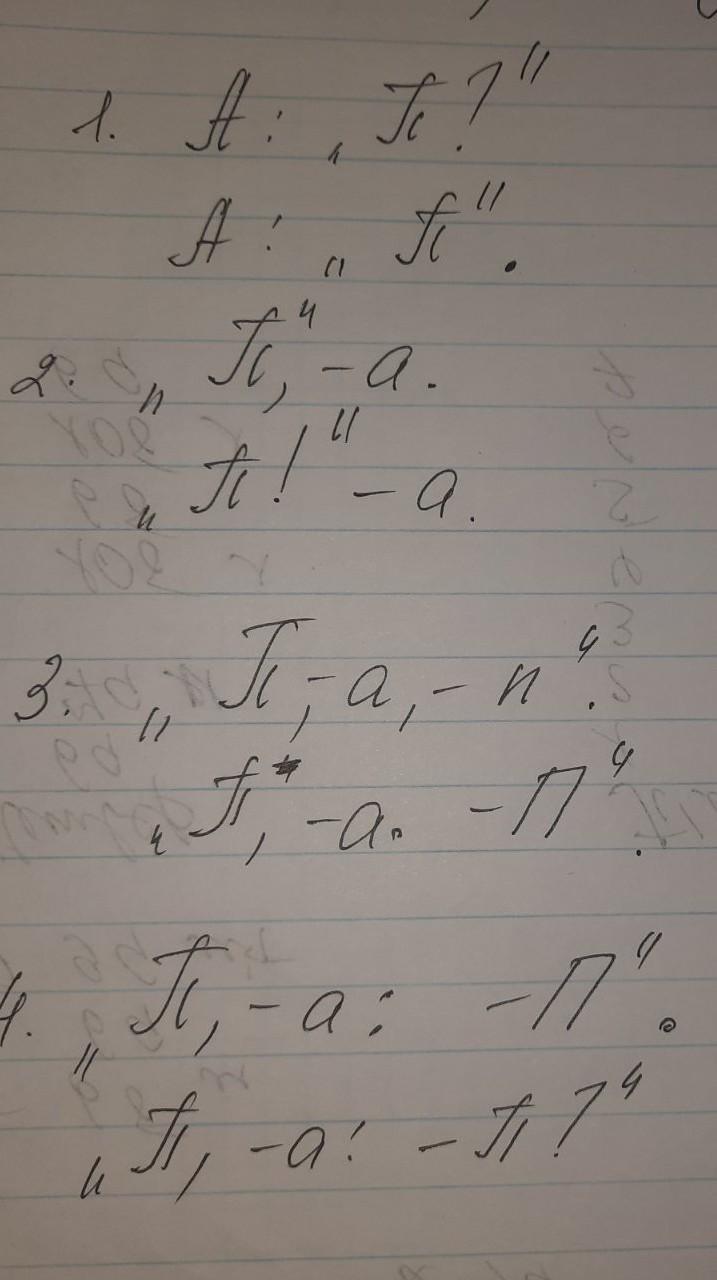 1. А: „П?"
А: „П".
2. „П", - а.
„П!" - а.
3. „П, - а, - п".
„П, - а. - П".
4. „П, - а: - П".
„П, - а: - П?"